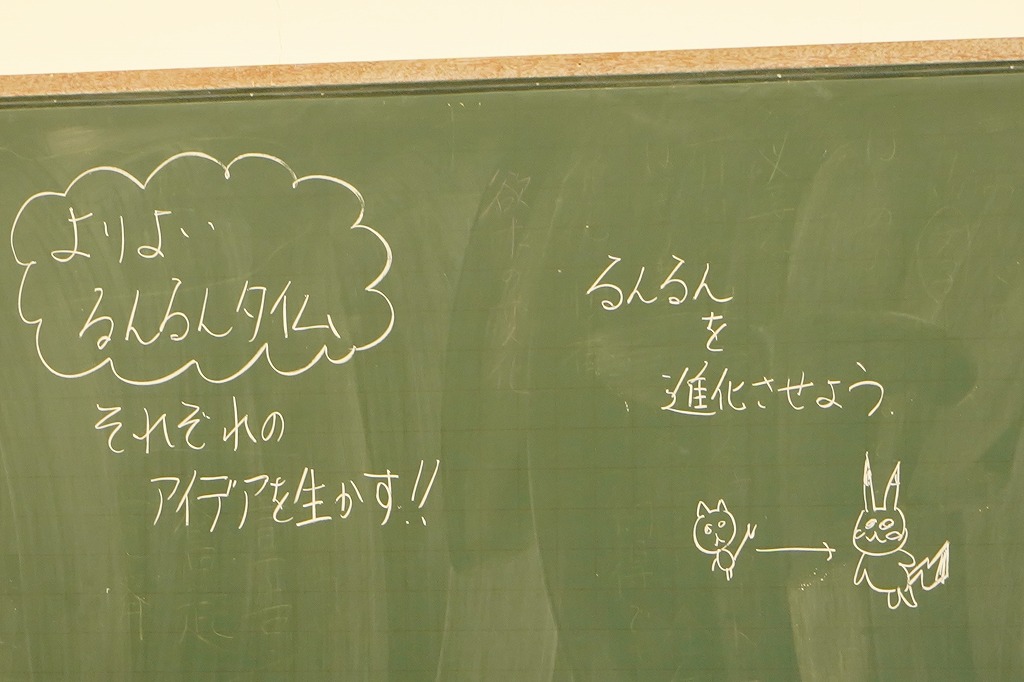 よりよい
るんるんタイム
それぞれの
アイデアを生かす!!
るんるん
を
進化させよう